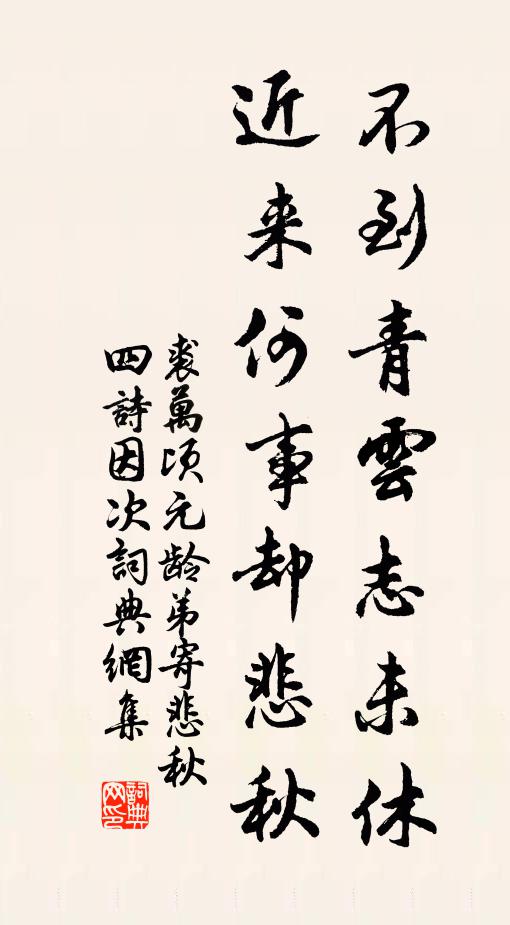 不到青雲志未休
近来何事却悲秋
裘萬頃元龄弟寄悲秋
四詩因次詞典網集
詞典
网印